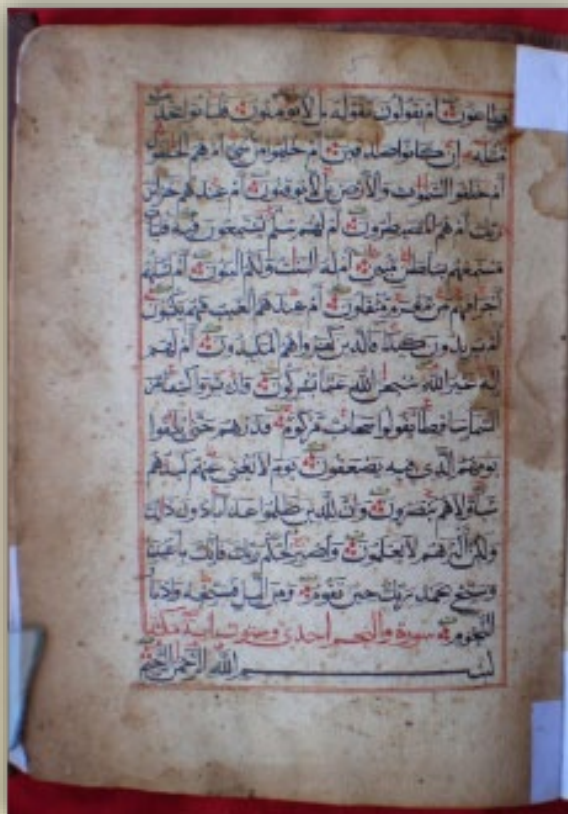 قوم طاغون أم يقولون تقوله بل لا يؤمنون فليأتوا بحديث
مثله إن كانوا صدقين أم خلقوا من غير شيء أم هم الخلقون
أم خلقوا السموات والأرض بل لا يوقنون أم عندهم خزائن
ربك أم هم المصيطرون أم لهم سلم يستمعون فيه فليأت
مستمعهم بسلطن مبين أم له البنت ولكم البنون أم تسئلهم
أجرا فهم من مغرم مثقلون أم عندهم الغيب فهم يكتبون
أم يريدون كيدا فالذين كفروا هم المكيدون أم لهم
إله غير الله سبحن الله عما يشركون وإن يروا كسفا من
السماء ساقطا يقولوا سحاب مركوم فذرهم حتى يلقوا
يومهم الذي فيه يصعقون يوم لا يغني عنهم كيدهم
شيئا ولا هم ينصرون وإن للذين ظلموا عذابا دون ذلك
ولكن أكثرهم لا يعلمون واصبر لحكم ربك فإنك بأعيننا
وسبح بحمد ربك حين تقوم ومن اليل فسبحه وإدبار
النجوم سورة والنجم احدى وستون اية مكية
بسم الله الرحمن الرحيم